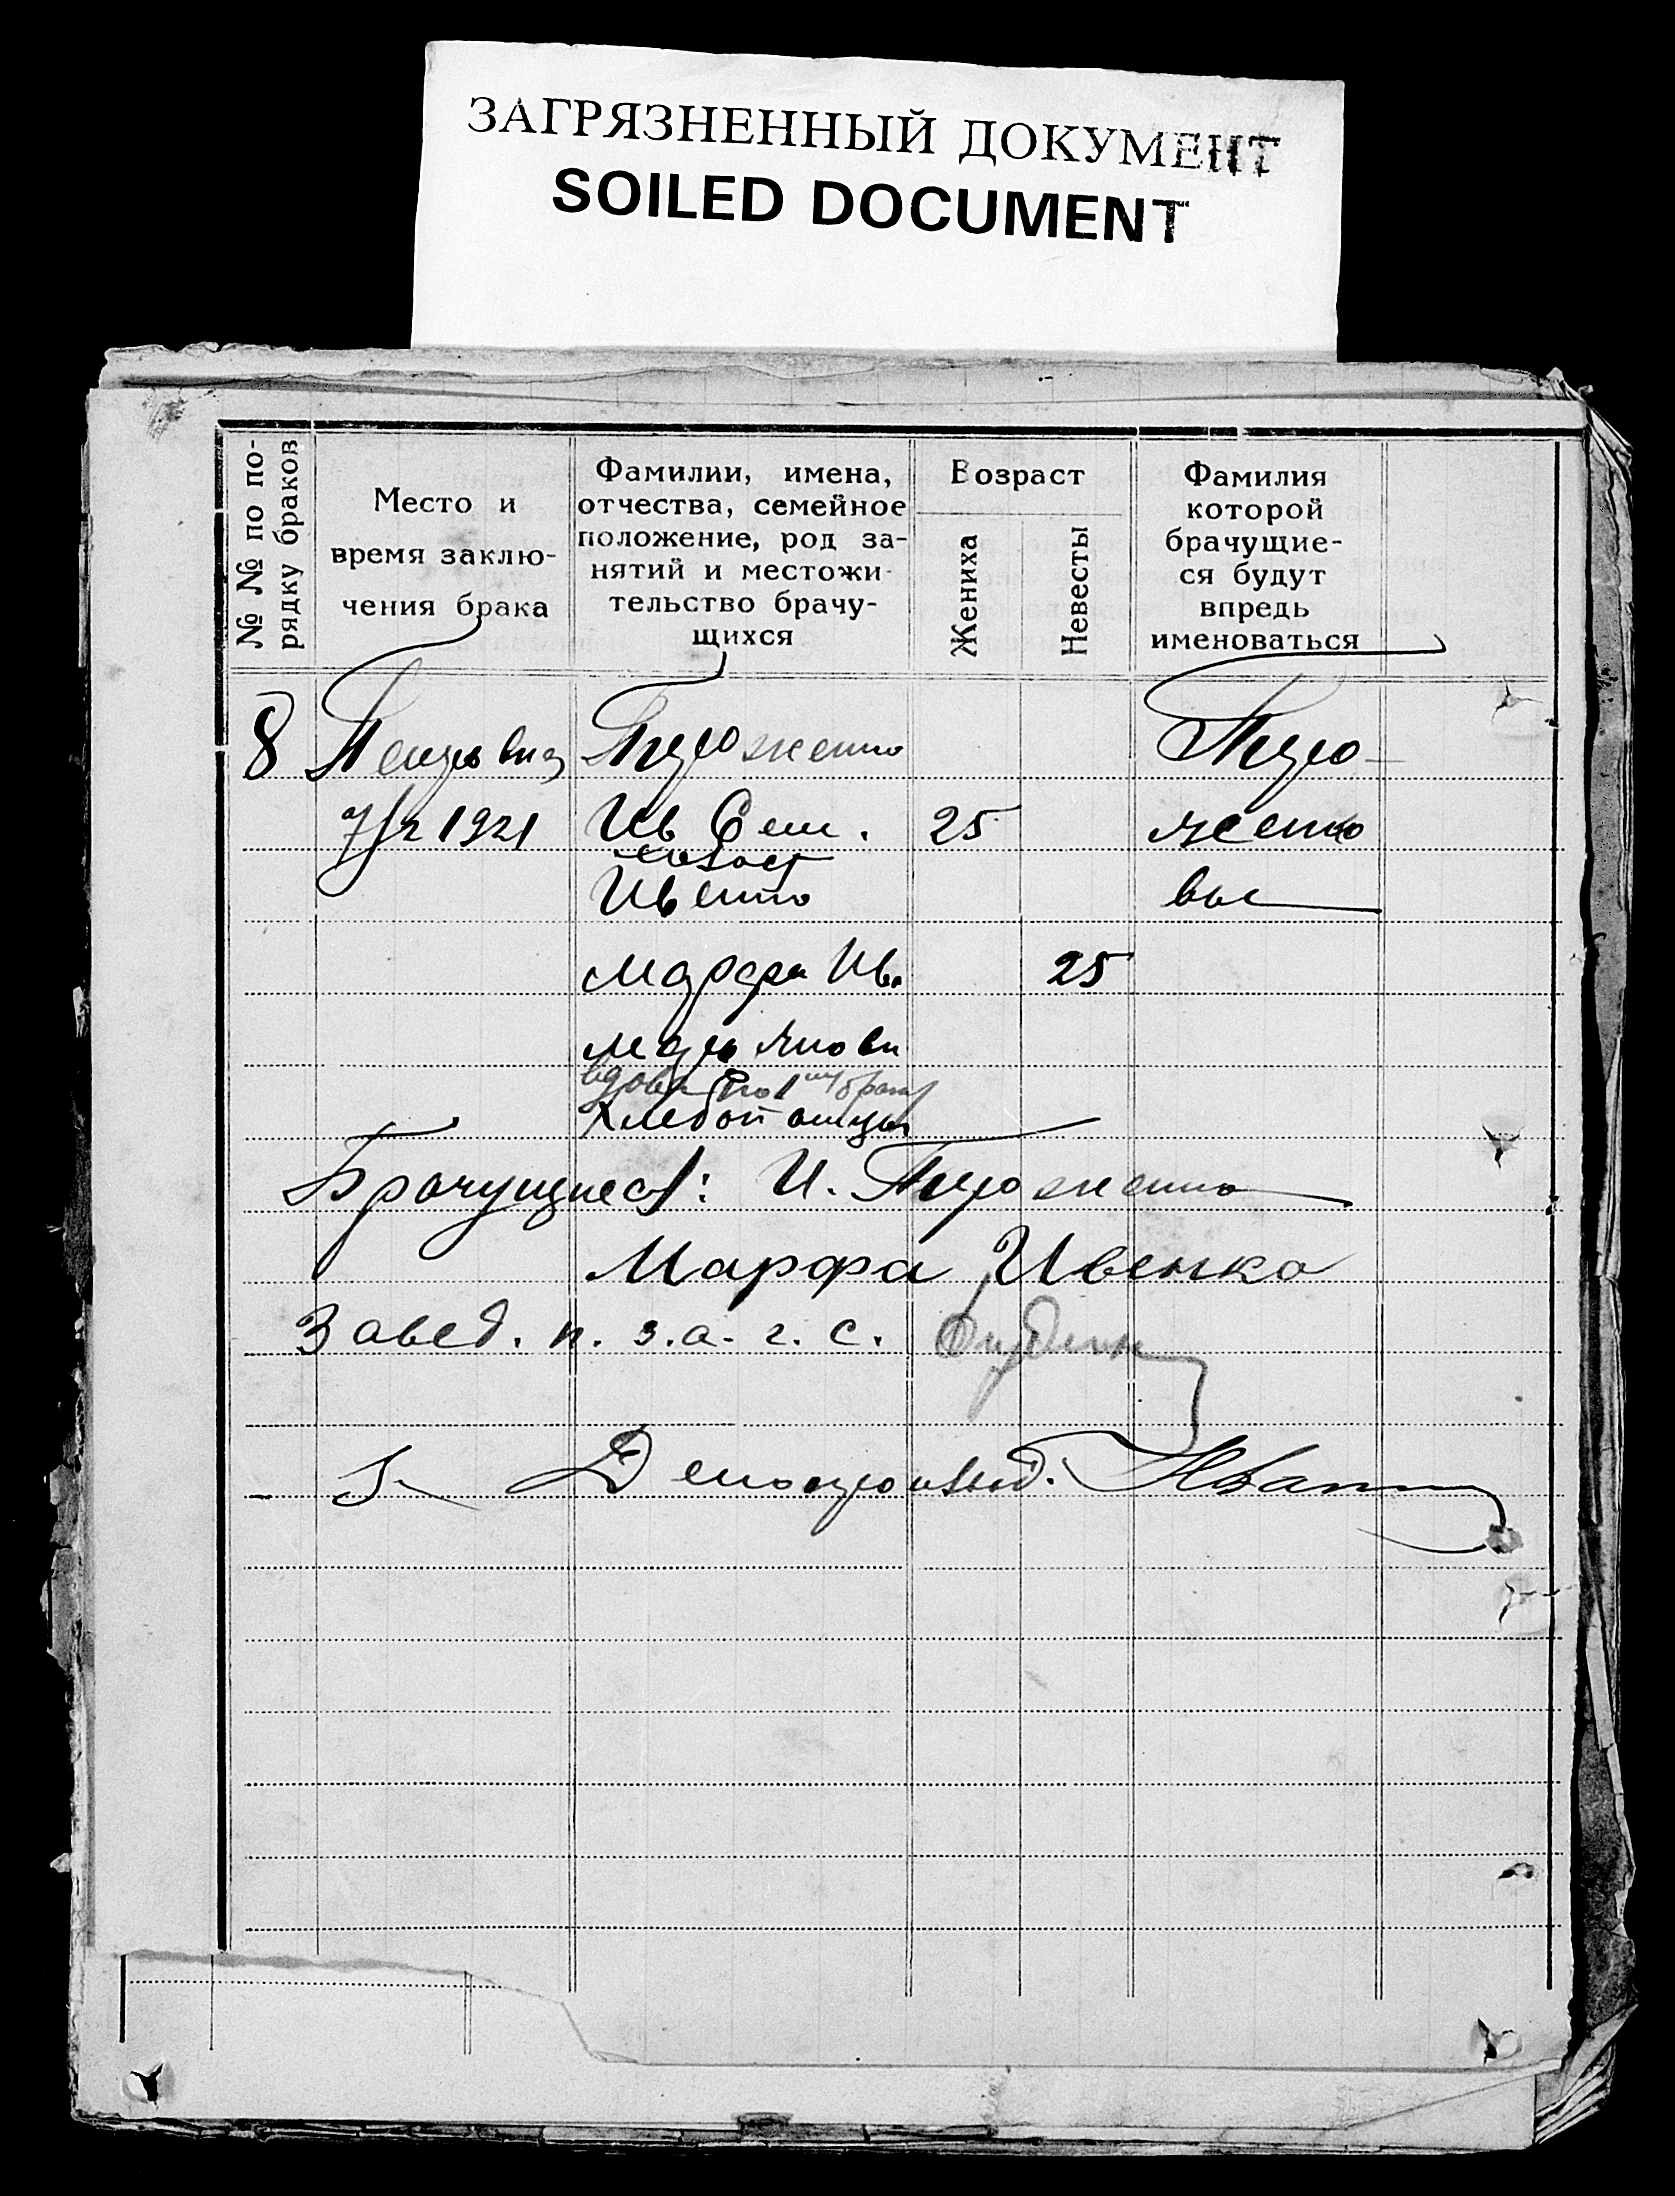 ЗАГРЯЗНЕННЫЙ ДОКУМЕНТ
SOILED DOCUMENT
№ № по по-
рядку браков
Место и
время заклю-
чения брака
Фамилии, имена,
отчества, семейное
положение, род за-
нятий и местожи-
тельство брачу-
щихся
Возраст
Жениха
Невесты
Фамилия
которой
брачущие-
ся будут
впредь
именоваться
8
7/2 1921
Ив Сем.
25
холост
Ивенко
Марфа Ив.
25
вдова по 1му браку
Хлебопашцы
Брачущиеся: И.
Марфа Ивенко
Завед. п. з. а. г. с.
Делопроизвод.